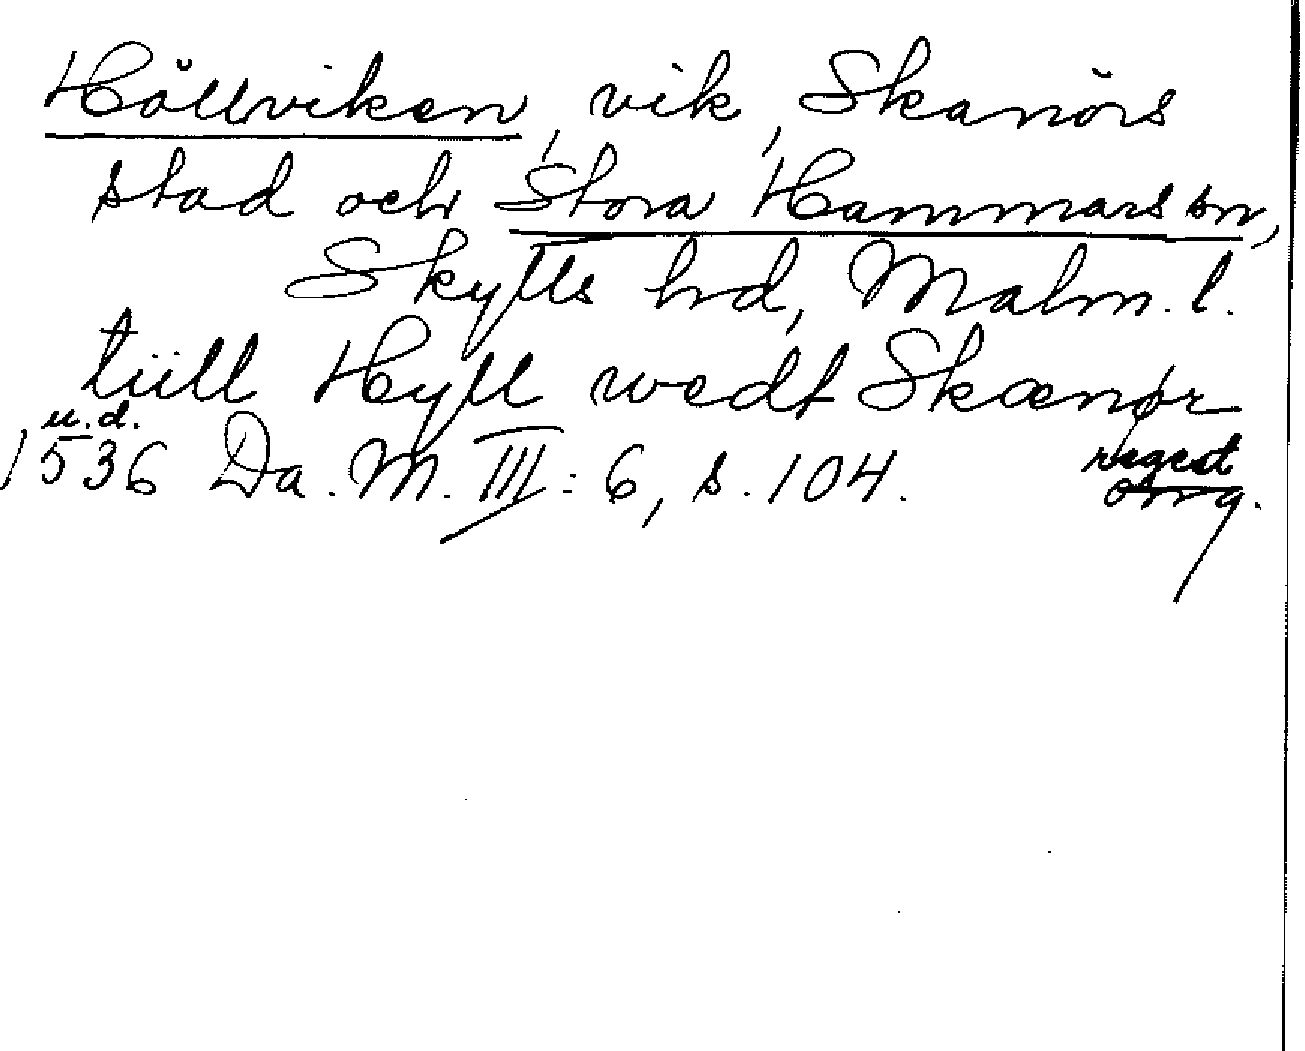 Höllviken, vik, Skanörs
stad och Stora Hammars sn,
Skytts hd, Malm. l.
tiill Hyll wedt Skænør
u.d.
1536 Da. M. III: 6, s. 104. regest